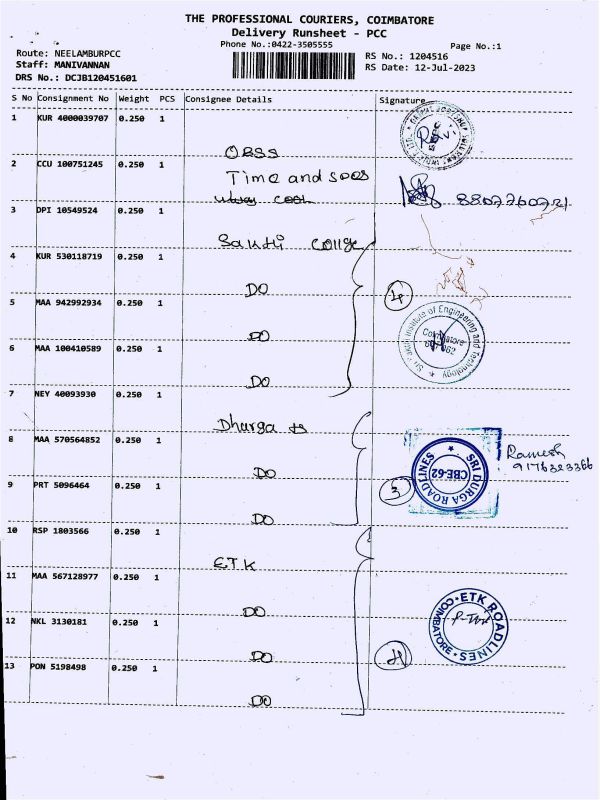 THE PROFESSIONAL COURIERS, COIMBATORE
Delivery Runsheet - PCC
Phone No.:0422-3505555
Page No.:1
Route: NEELAMBURPCC
Staff: MANIVANNAN
DRS No.: DCJB120451601
RS No.: 1204516
RS Date: 12-Jul-2023
S No Consignment No Weight PCS Consignee Details Signature
1 KUR 4000039707 0.250 1
OBSS
2 CCU 100751245 0.250 1
Time and
8807760721
3 DPI 10549524 0.250 1
Sakthi Collge
4 KUR 530118719 0.250 1
DO
4
5 MAA 942992934 0.250 1
DO
Institute of Engineering and Technology
Coimbatore
6 MAA 100410589 0.250 1
DO
7 NEY 40093930 0.250 1
Dhurga
8 MAA 570564852 0.250 1
DO
SRI DURGA ROADLINES
CBE-62
Ramesh
9176323366
9 PRT 5096464 0.250 1
DO
3
10 RSP 1803566 0.250 1
ETK
11 MAA 567128977 0.250 1
DO
12 NKL 3130181 0.250 1
DO
ETK ROADLINES
COIMBATORE
13 PON 5198498 0.250 1
DO